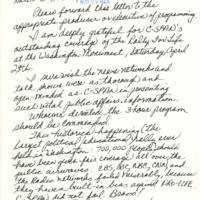 Please forward this letter to the
appropriate producer or executive of programming
I am deeply grateful for C-SPAN's
outstanding coverage of the Rally for Life
at the Washington Monument, Saturday, April
28th.
I wish the news network and
talk shows were as thorough and
open-minded as C-SPAN in presenting
such vital public affairs information.
Whoever directed the 3 hour program
should be commended.
This historical happening (the
largest political rally ever
held in Washington - 700,000 people) should
have been given fair coverage all over the
public airwaves. CBS, ABC, NBC, CNN, and
the Radio networks failed miserably, because
they have a built in bias against PRO-LIFE
C-SPAN did not fail. Bravo!